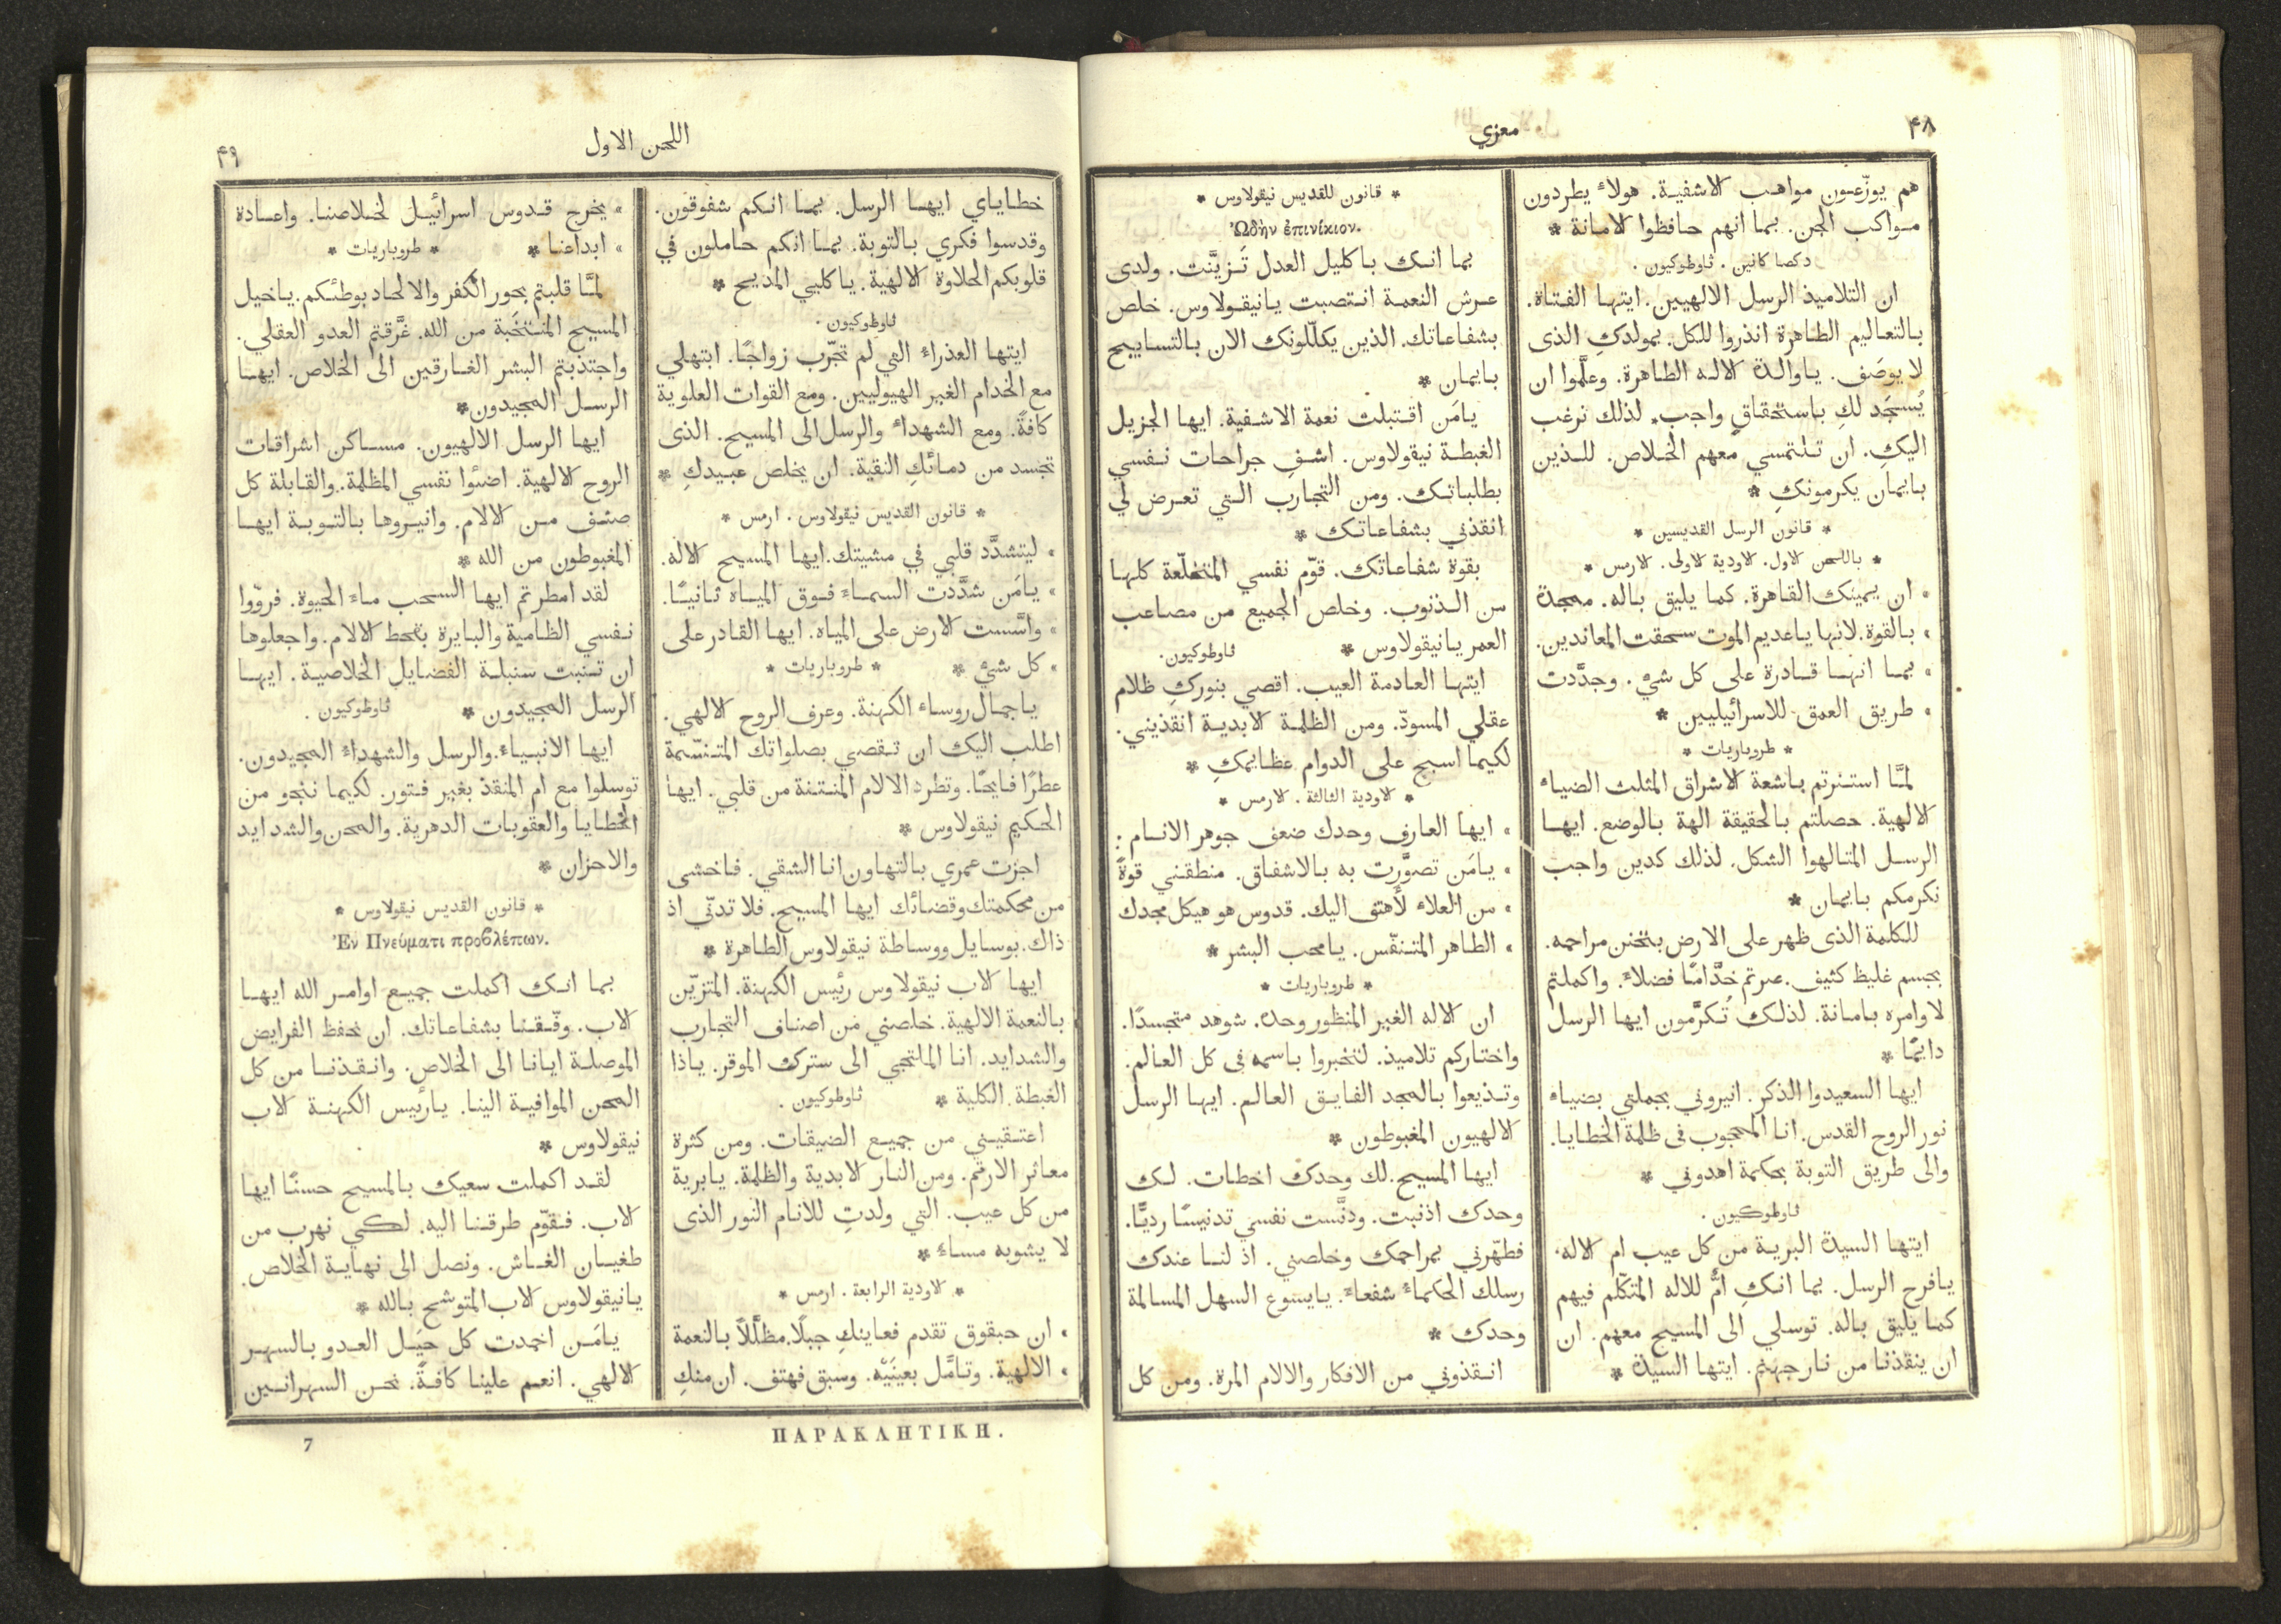 ٤٨
معزي
هم يوزّعون مواهب الاشفية. هولاء يطردون
مواكب الجن. بما انهم حافظوا الامانة *
دكصا كانين . ثاوطوكيون .
ان التلاميذ الرسل الالهيين. ايتها الفتاة.
بالتعاليم الطاهرة انذروا للكل. بمولدكِ الذى
لا يوصَف. يا والدة الاله الطاهرة. وعلَّموا ان
يُسجَد لكِ باستحقاقٍ واجب. لذلك نرغب
اليكِ. ان تلتمسي معهم الخلاص. للذين
بايمان يكرمونكِ *
* قانون الرسل القديسين *
* باللحن الاول. الاودية الاولى. الارمس *
» ان يمينك القاهرة. كما يليق باله. ممجدة
» بالقوة. لانها ياعديم الموت سحقت المعاندين.
» بما انها قادرة على كل شيء . وجدَّدت
» طريق العمق للاسرائيليين *
* طروباريات *
لمَّا استنرتم باشعة الاشراق المثلث الضياء
الالهية. حصلتم بالحقيقة الهة بالوضع. ايها
الرسل المتالهوا الشكل. لذلك كدين واجب
نكرمكم بايمان *
للكلمة الذى ظهر على الارض بتحنن مراحمه.
بجسم غليظ كثيف. صرتم خدَّامًا فضلاء. واكملتم
لاوامره بامانة. لذلك تُكرَّمون ايها الرسل
دايمًا *
ايها السعيدوا الذكر. انيروني بجملتي بضياء
نور الروح القدس. انا المحجوب فى ظلمة الخطايا.
والى طريق التوبة بحكمة اهدوني *
ثاوطوكيون .
ايتها السيدة البرية من كل عيب ام الاله.
يافرح الرسل. بما انكِ امٌّ للاله المتكلّم فيهم
كما يليق باله. توسلي الى المسيح معهم. ان
ان ينقذنا من نار جهنم. ايتها السيدة *
* قانون للقديس نيقولاوس *
Ὠδὴν ἐπινίκιον.
بما انك باكليل العدل تَزيَّنت. ولدى
عرش النعمة انتصبت يانيقولاوس. خلص
بشفاعاتك. الذين يكلّلونك الان بالتسابيح
بايمان *
يامَن اقتبلت نعمة الاشفية. ايها الجزيل
الغبطة نيقولاوس. اشفِ جراحات نفسي
بطلباتك. ومن التجارب التي تعرض لي
انقذني بشفاعاتك *
بقوة شفاعاتك. قوّم نفسي المتخلّعة كلها
من الذنوب. وخلص الجميع من مصاعب
العمر يانيقولاوس * ثاوطوكيون.
ايتها العادمة العيب. اقصي بنوركِ ظلام
عقلي المسودّ. ومن الظلمة الابدية انقذيني.
لكيما اسبح على الدوام عظايمكِ *
* الاودية الثالثة . الارمس *
» ايها العارف وحدك ضعف جوهر الانام :
» يامَن تصوَّرت به بالاشفاق. منطقني قوةً
» من العلاء لأهتف اليك. قدوس هو هيكل مجدك
» الطاهر المتنفّس. يامحب البشر *
* طروباريات *
ان الاله الغير المنظور وحده. شوهد متجسدًا.
واختاركم تلاميذ. لتخبروا باسمه فى كل العالم.
وتذيعوا بالمجد الفايق العالم. ايها الرسل
الالهيون المغبوطون *
ايها المسيح. لك وحدك اخطات. لك
وحدك اذنبت. ودنَّست نفسي تدنيسًا رديًّا.
فطهّرني بمراحمك وخلصني. اذ لنا عندك
رسلك الحكماء شفعاءً. يايسوع السهل المسالمة
وحدك *
انقذوني من الافكار والالام المرة. ومن كل
اللحن الاول
٤٩
خطاياي ايها الرسل. بما انكم شفوقون.
وقدسوا فكري بالتوبة. بما انكم حاملون في
قلوبكم الحلاوة الالهية. ياكليي المديح *
ثاوطوكيون .
ايتها العذراء التي لم تجرّب زواجًا. ابتهلي
مع الخدام الغير الهيوليين. ومع القوات العلوية
كافةً. ومع الشهداء والرسل الى المسيح. الذى
تجسد من دمائكِ النقية. ان يخلص عبيدكِ *
* قانون القديس نيقولاوس . ارمس *
» ليتشدَّد قلبي في مشيتك. ايها المسيح الاله.
» يامَن شدَّدت السماءَ فوق المياه ثانيًا.
» واسَّست الارض على المياه. ايها القادر على
» كل شيءٍ * * طروباريات *
ياجمال روساء الكهنة. وعرف الروح الالهي.
اطلب اليك ان تقصي بصلواتك المتنسّمة
عطرًا فايحًا. وتطرد الالام المنتنة من قلبي. ايها
الحكيم نيقولاوس *
اجزت عمري بالتهاون انا الشقي. فاخشى
من محكمتك وقضائك ايها المسيح. فلا تدنّي اذ
ذاك. بوسايل ووساطة نيقولاوس الطاهرة *
ايها الاب نيقولاوس رئيس الكهنة. المتزيّن
بالنعمة الالهية. خلصني من اصناف التجارب
والشدايد. انا الملتجي الى سترك الموقر. ياذا
الغبطة الكلية * ثاوطوكيون .
اعتقيني من جميع الضيقات. ومن كثرة
معاثر الاركم. ومن النار الابدية والظلمة. يابرية
من كل عيب. التي ولدتِ للانام النور الذى
لا يشوبه مساءٌ *
* الاودية الرابعة . ارمس *
» ان حبقوق تقدم فعاينكِ جبلًا. مظلَّلاً بالنعمة
» الالهية. وتامَّل بعينَيْه. وسبق فهتف. ان منكِ
» يخرج قدوس اسرائيل لخلاصنا. واعادة
» ابداعنا * * طروباريات *
لمَّا قلبتم بحور الكفر والالحاد بوطئكم. ياخيل
المسيح المنتخَبة من الله. غرَّقتم العدو العقلي.
واجتذبتم البشر الغارقين الى الخلاص. ايها
الرسل المجيدون *
ايها الرسل الالهيون. مساكن اشراقات
الروح الالهية. اضئوا نفسي المظلمة. والقابلة كل
صنف من الالام. وانيروها بالتوبة ايها
المغبوطون من الله *
لقد امطرتم ايها السحب ماءَ الحيوة. فروّوا
نفسي الظامية والبايرة بقحط الالام. واجعلوها
ان تنبت سنبلة الفضايل الخلاصية. ايها
الرسل المجيدون * ثاوطوكيون .
ايها الانبياء. والرسل والشهداءُ المجيدون.
توسلوا مع ام المنقذ بغير فتور. لكيما ننجو من
الخطايا والعقوبات الدهرية. والمحن والشدايد
والاحزان *
* قانون القديس نيقولاوس *
Ἐν Πνεύματι προβλέπων.
بما انك اكملت جميع اوامر الله ايها
الاب. وفّقنا بشفاعاتك. ان نحفظ الفرايض
الموصلة ايانا الى الخلاص. وانقذنا من كل
المحن الموافية الينا. يارئيس الكهنة الاب
نيقولاوس *
لقد اكملت سعيك بالمسيح حسنًا ايها
الاب. فقوّم طرقنا اليه. لكي نهرب من
طغيان الغاش. ونصل الى نهاية الخلاص.
يانيقولاوس الاب المتوشح بالله *
يامَن اخمدت كل حيَل العدو بالسهر
الالهي. انعم علينا كافةً. نحن السهرانين
ΠΑΡΑΚΛΗΤΙΚΗ.
7